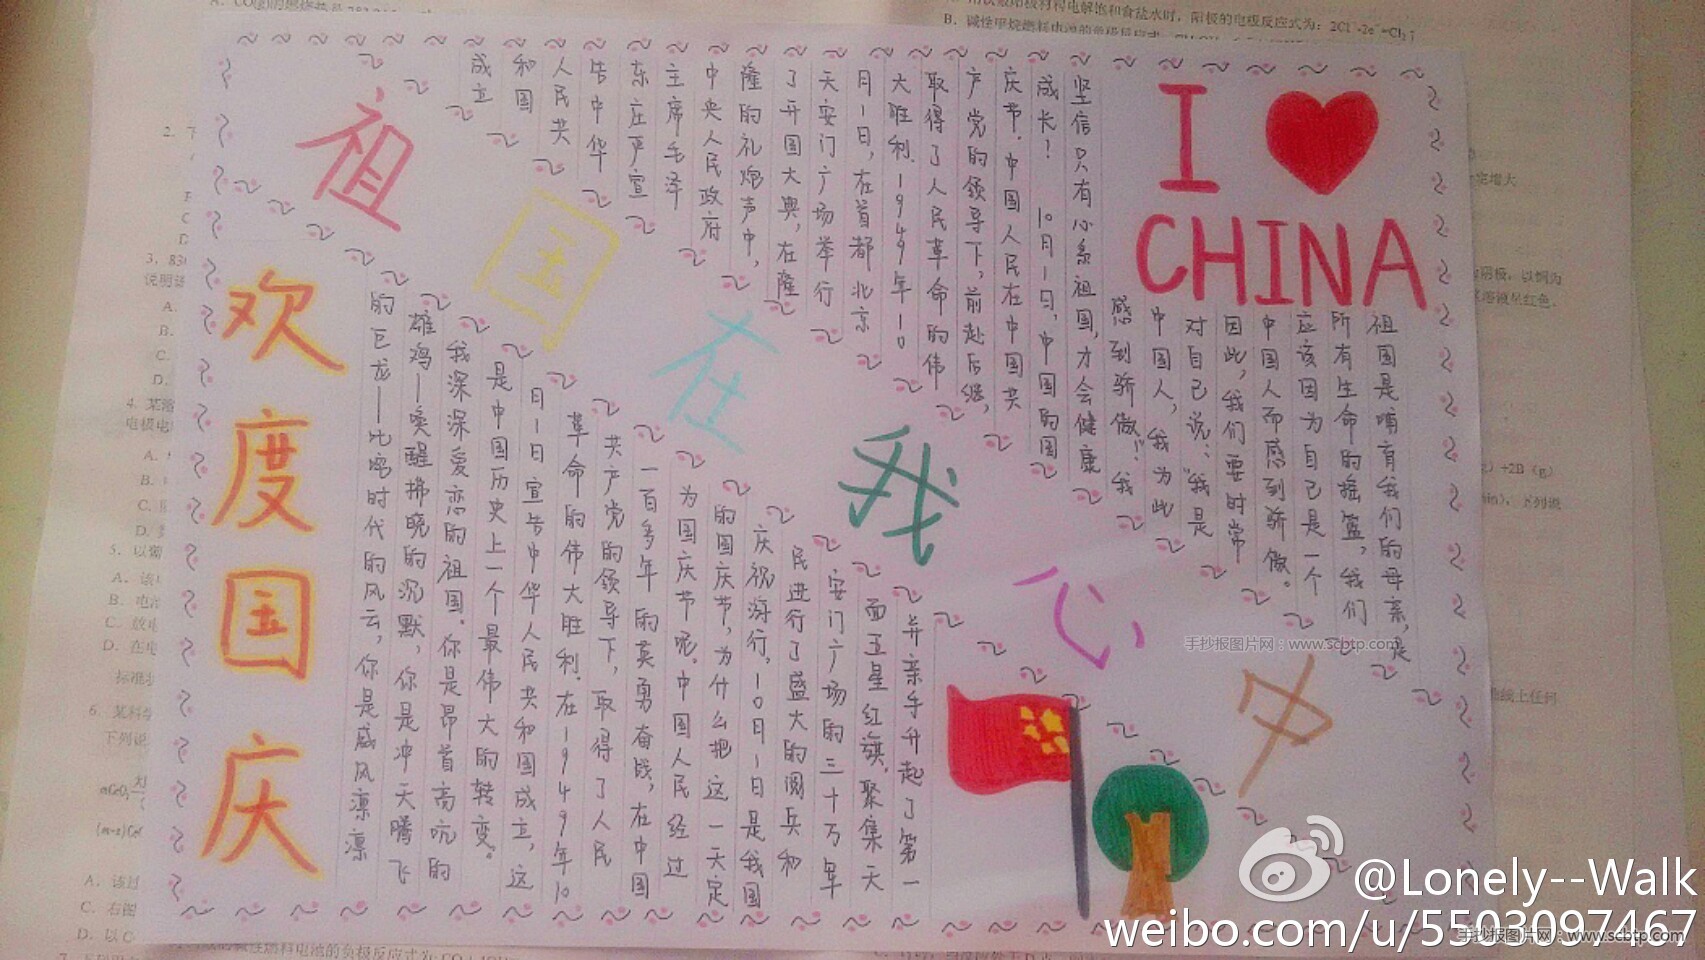 I ❤
CHINA
祖国在我心中
欢度国庆
祖国是哺育我们的母亲,是
所有生命的摇篮,我们
应该因为自己是一个
中国人而感到骄傲。
因此,我们要时常
对自己说:“我是
中国人,我为此
感到骄傲!”我
坚信只有心系祖国,才会健康
成长! 10月1日,中国的国
庆节.中国人民在中国共
产党的领导下,前赴后继,
取得了人民革命的伟
大胜利.1949年10
月1日,在首都北京
天安门广场举行
了开国大典,在隆
隆的礼炮声中,
中央人民政府
主席毛泽
东庄严宣
告中华
人民共
和国
成立
并亲手升起了第一
面五星红旗.聚集天
安门广场的三十万军
民进行了盛大的阅兵和
庆祝游行.10月1日是我国
的国庆节,为什么把这一天定
为国庆节呢.中国人民经过
一百多年的英勇奋战,在中国
共产党的领导下,取得了人民
革命的伟大胜利.在1949年10
月1日宣告中华人民共和国成立,这
是中国历史上一个最伟大的转变。
我深深爱恋的祖国.你是昂首高吭的
雄鸡—唤醒拂晓的沉默,你是冲天腾飞
的巨龙—叱咤时代的风云,你是威风凛凛
手抄报图片网:www.scbtp.com
@Lonely--Walk
weibo.com/u/5503097467
手抄报图片网:www.scbtp.com